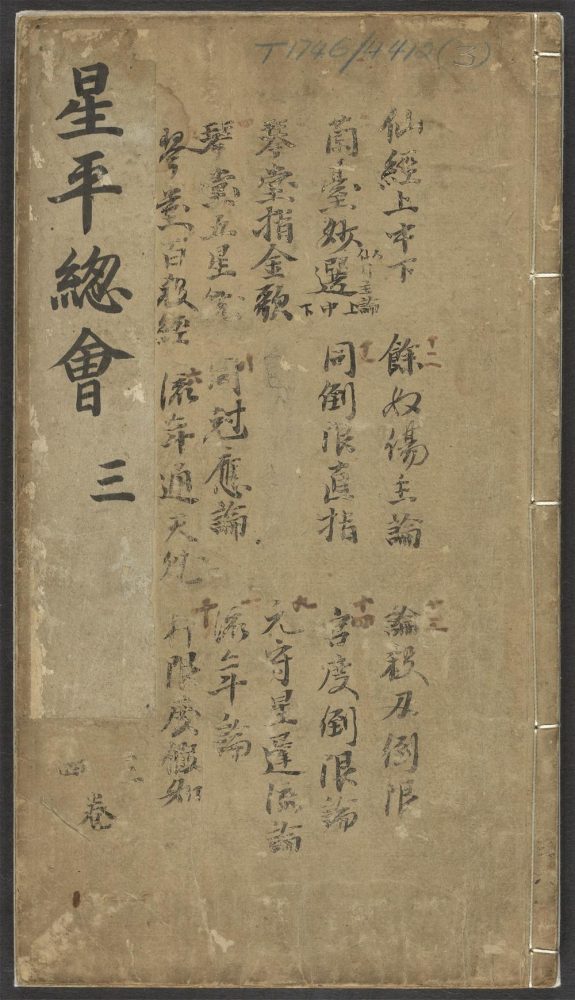 T1746/4412(3)
星平總會
三
仙經上中下
十二
餘奴傷主論
十三
論殺刃倒限
蘭臺妙選
上中下
同倒限直指
十四
宮度倒限論
琴堂指金歌
九
元守星逢流論
琴堂五星
同尅應論
流年論
琴堂百殺經
流年通天
十
行限度
三
四卷